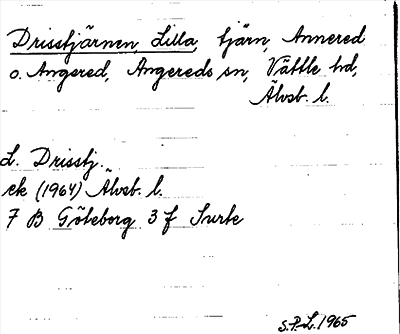 Drisstjärnen, Lilla, tjärn, Annered
o. Angered, Angereds sn, Vättle hd,
Älvsb. l.
L. Drisstj.
ek (1964) Älvsb. l.
7 B Göteborg 3 f Surte
S.P-L. 1965